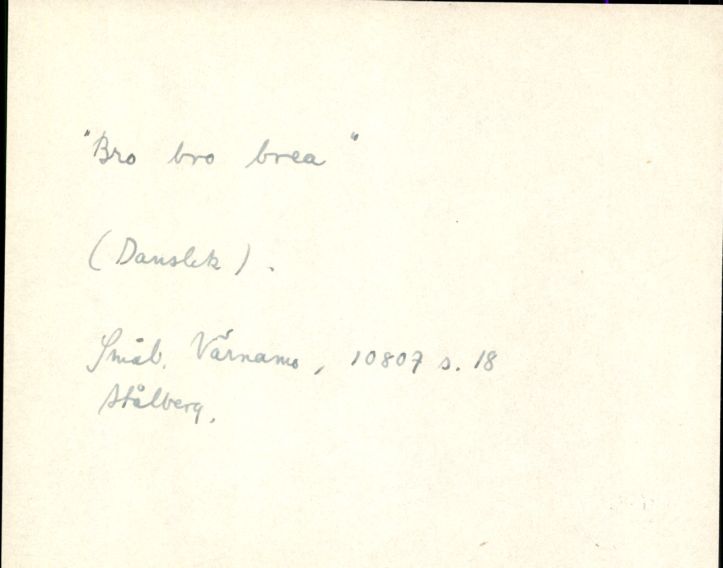 "Bro bro brea"
(Danslek).
Smål. Värnamo, 10807 s. 18
Stålberg.